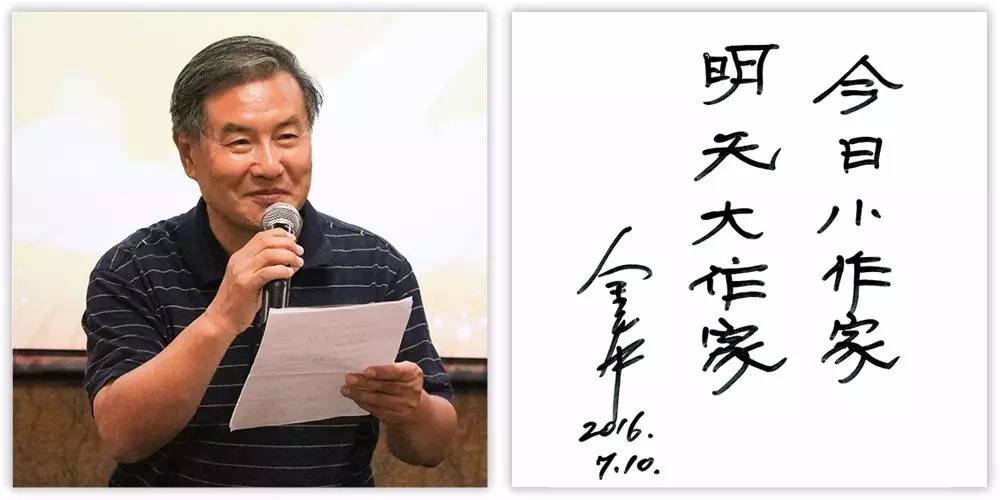 今日小作家
明天大作家
2016.
7.10.